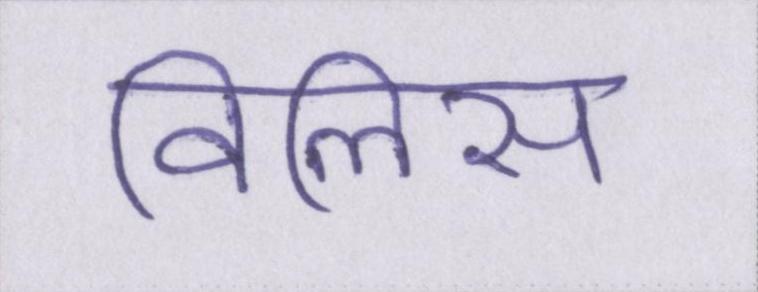 विलिस